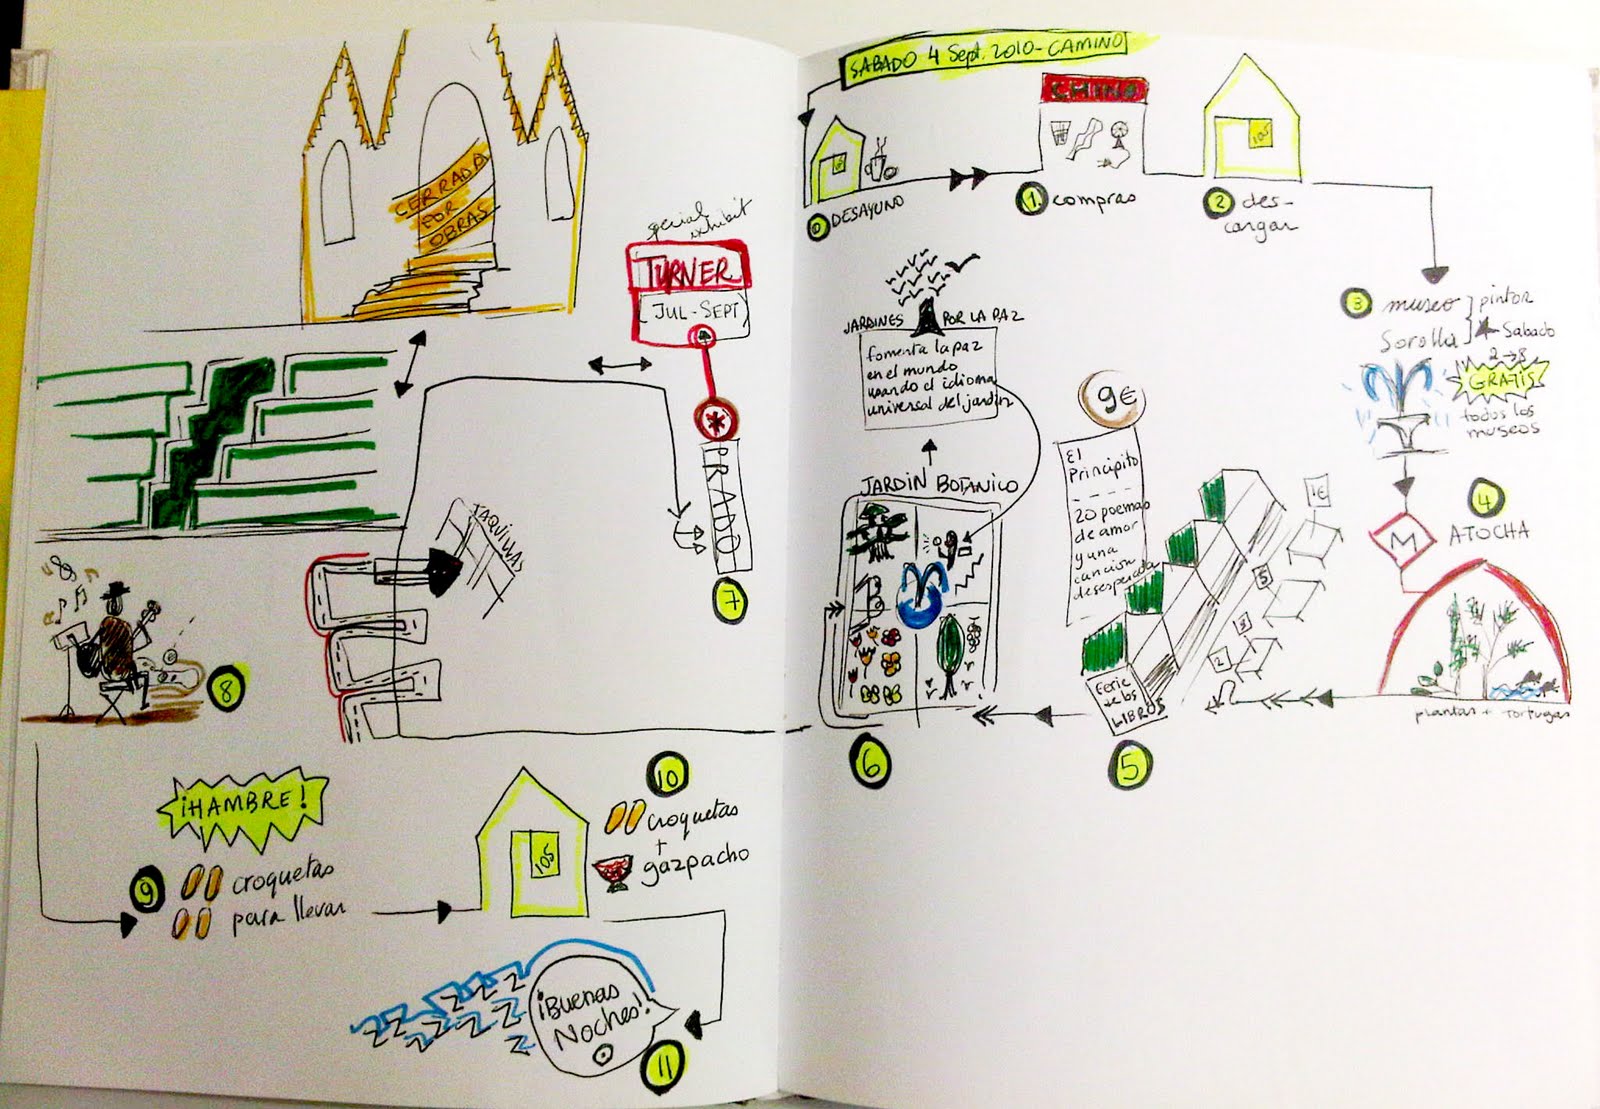 SABADO 4 Sept. 2010-CAMINO
0 DESAYUNO
CHINO
1. compras
105
2 des-
cargar
3 museo
Sorolla
pintor
Sabado
2→8
GRATIS
todos los
museos
4
M ATOCHA
plantas + tortugas
1€
5
2
Feria
de los
LIBROS
5
9€
El
Principito
20 poemas
de amor
y una
cancion
desesperada
JARDIN BOTANICO
6
JARDINES POR LA PAZ
fomenta la paz
en el mundo
usando el idioma
universal del jardín
TAQUILLAS
7
PRADO
*
TURNER
JUL-SEPT
special
exhibit
CERRADA
POR
OBRAS
8
¡HAMBRE!
9
croquetas
para llevar
105
10
croquetas
+
gazpacho
¡Buenas
Noches!
11
zzz